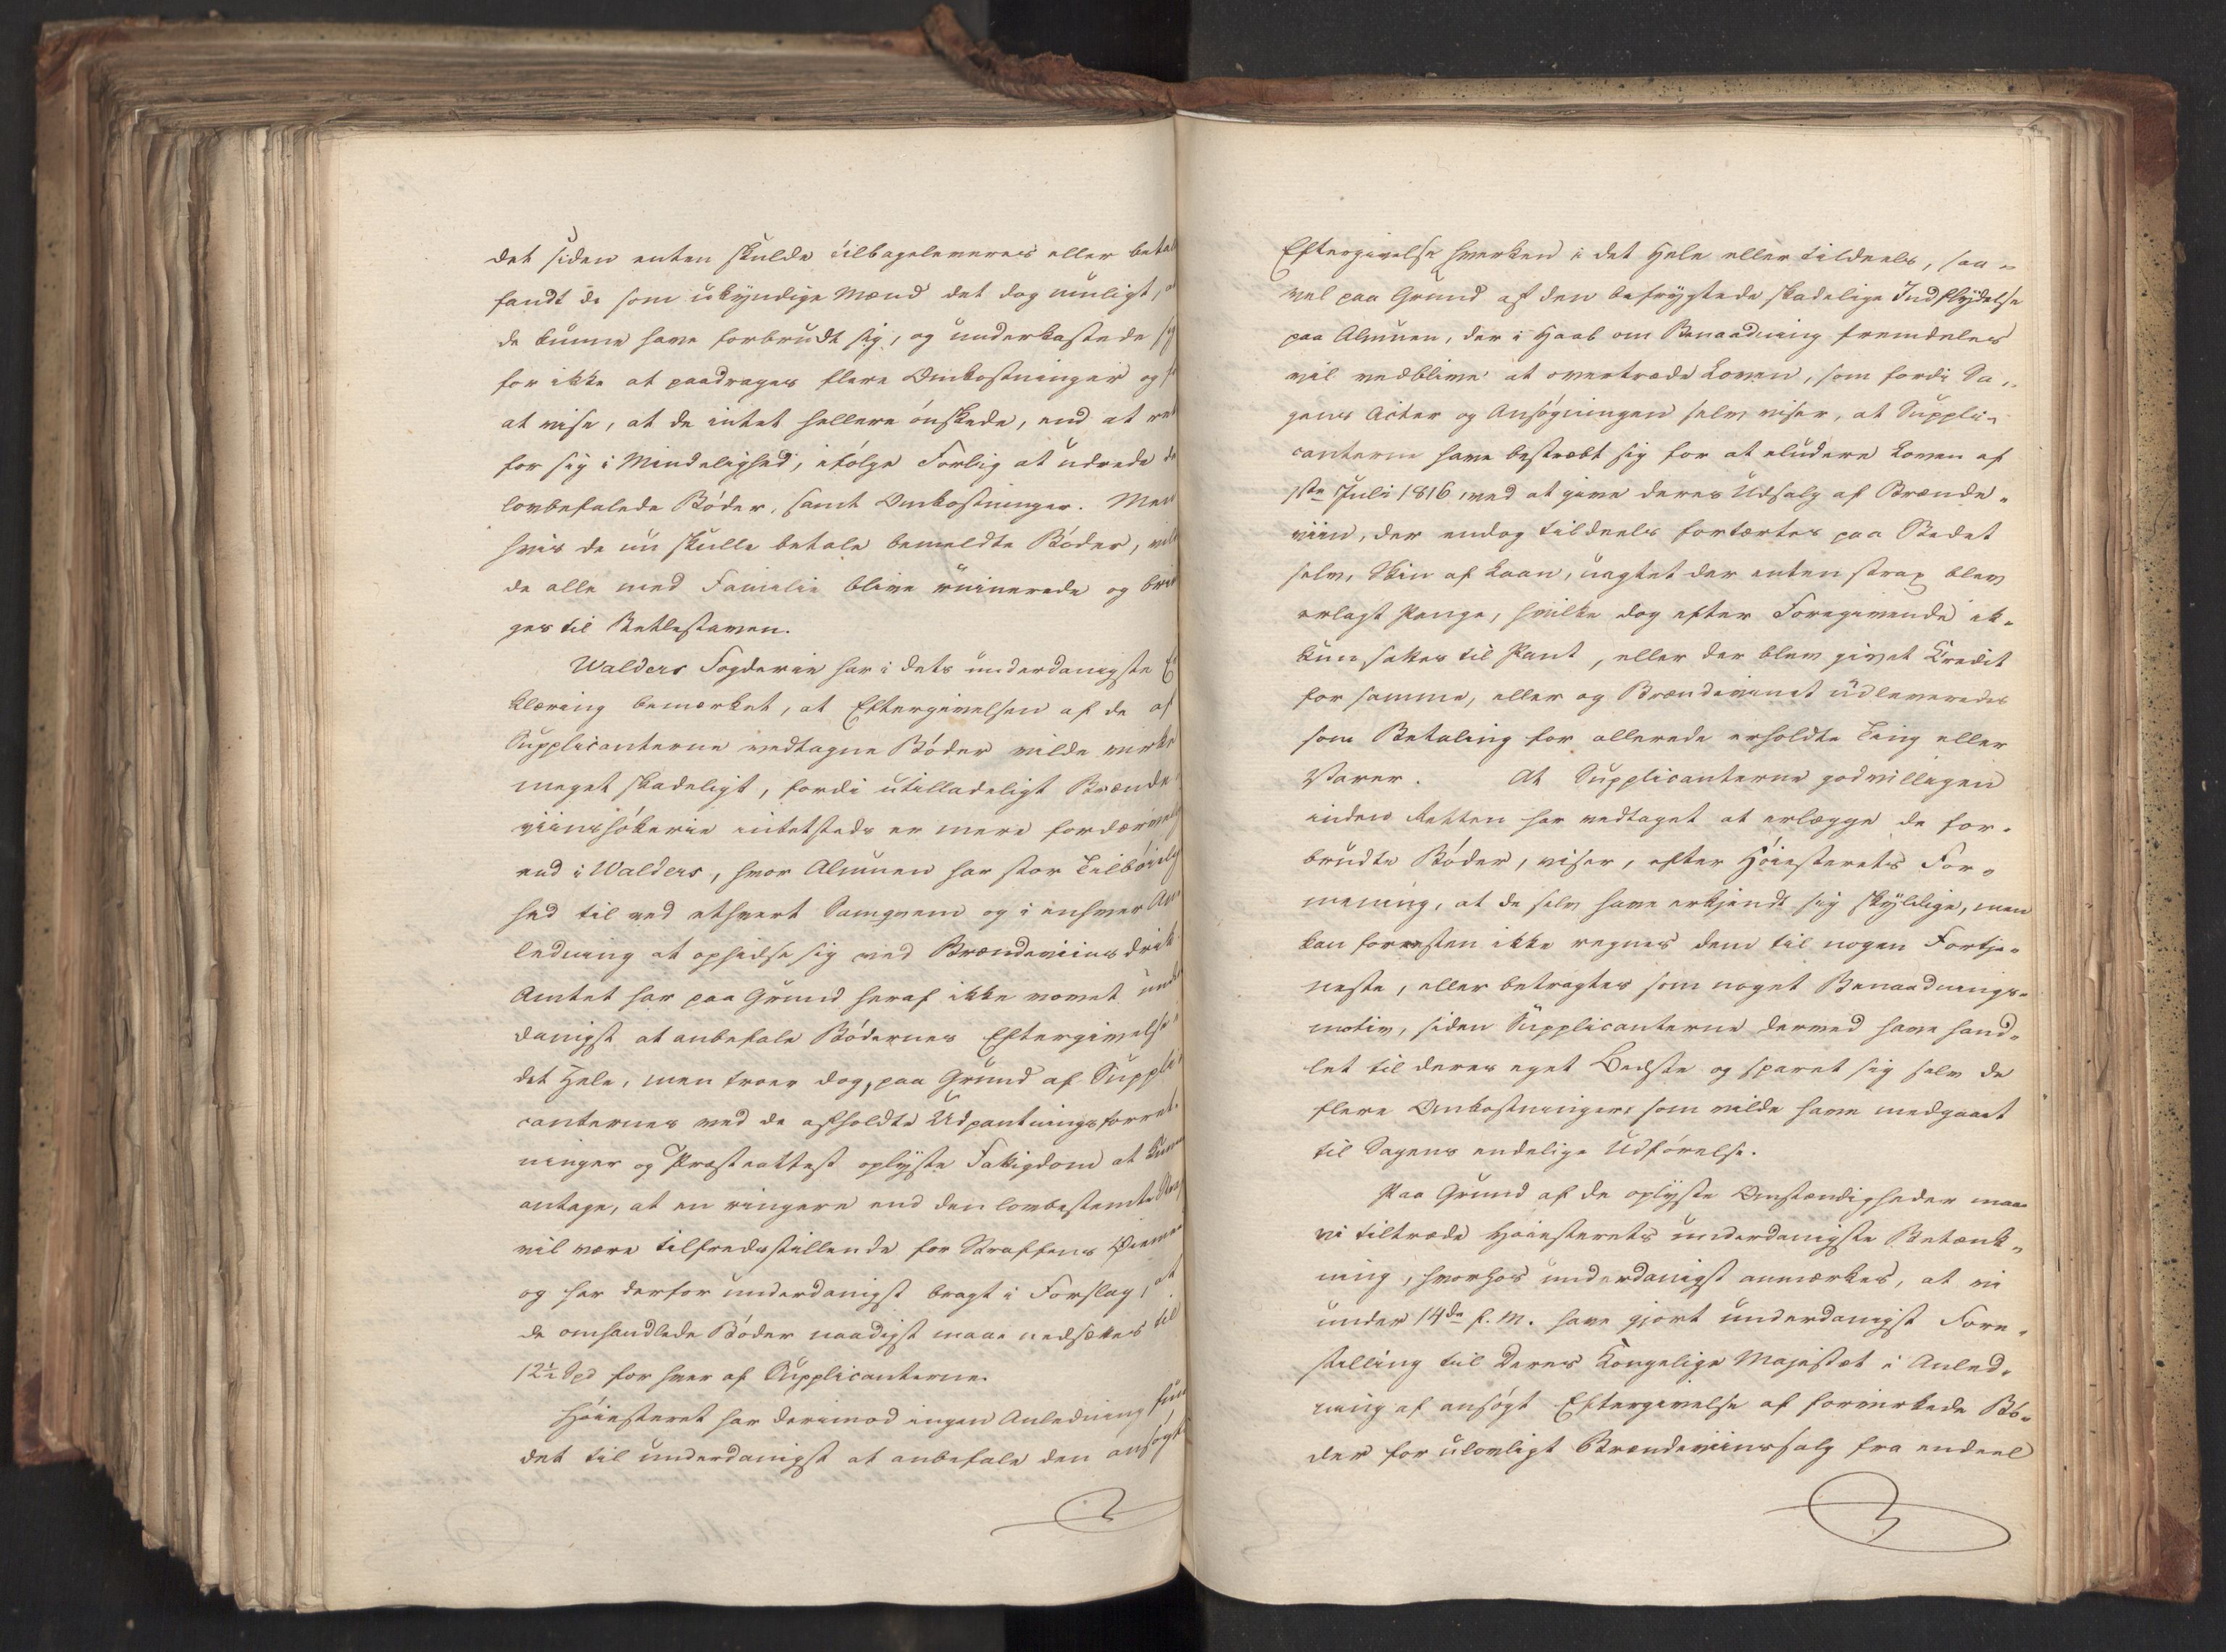 det siden enten skulde tilbageleveres eller betal
fandt de som ukyndige Mænd det dog muligt, at
de kunne have forbrudt sig, og underkastede sig
for ikke at paadrages flere Omkostninger og for
at vise, at de intet hellere ønskede, end at ret
for sig i Mindelighed, ifølge Forlig at udrede de
lovbefalede Bøder, samt Omkostninger. Men
hvis de nu skulle betale bemeldte Bøder, vilde
de alle med Familie blive ruinerede og brin
ges til Betlestaven.
Walders Fogderie har i dets underdanigste Er
klæring bemærket, at Eftergivelsen af de af
Supplicanterne vedtagne Bøder vilde virke
meget skadeligt, fordi utilladeligt Brænde
viinshøkerie intetsteds er mere fordærvelig
end i Walders, hvor Almuen har stor Tilbøielig
hed til ved ethvert Samqvem og i enhver An
ledning at ophidse sig ved Brændeviins drik
Amtet har paa Grund heraf ikke vovet under
danigst at anbefale Bødernes Eftergivelse i
det Hele, men troer dog, paa Grund af Suppli
canternes ved de afholdte Udpantningsforret-
ninger og Præsteattest oplyste Fattigdom at kunne
antage, at en ringere end den lovbestemte Straf
vil være tilfredsstillende for Straffens Øiemed
og har derfor underdanigst bragt i Forslag, at
de omhandlede Bøder naadigst maae nedsættes til
12½ Spd for hver af Supplicanterne.
Høiesteret har derimod ingen Anledning fun
det til underdanigst at anbefale den ansøgte
Eftergivelse hverken i det Hele eller tildeels, saa-
vel paa Grund af den befrygtede skadelige Indflydelse
paa Almuen, der i Haab om Benaadning fremdeles
vil vedblive at overtræde Loven, som fordi Sa-
gens Acter og Ansøgningen selv viser, at Suppli-
canterne have bestræbt sig for at eludere Loven af
1ste Juli 1816, ved at give deres Udsalg af Brænde-
viin, der endog tildeels fortærtes paa Stedet
selv, Skin af Laan, uagtet der enten strax blev
erlagt Penge, hvilke dog efter Foregivende ik-
kun sattes til Pant, eller der blev givet Credit
for samme, eller og Brændevinet udleveredes
som Betaling for allerede erholdte Ting eller
Varer. At Supplicanterne godvilligen
inden Retten har vedtaget at erlægge de for-
brudte Bøder, viser, efter Høiesterets For-
mening, at de selv have erkjendt sig skyldige, men
kan forresten ikke regnes dem til nogen Fortje-
neste, eller betragtes som noget Benaadnings-
motiv, siden Supplicanterne derved have hand-
let til deres eget Bedste og sparet sig selv de
flere Omkostninger, som vilde have medgaaet
til Sagens endelige Udførelse.
Paa Grund af de oplyste Omstændigheder maae
vi tiltræde Høiesterets underdanigste Betænk-
ning, hvorhos underdanigst anmærkes, at vi
under 14de f. M. have gjort underdanigst Fore-
stilling til Deres Kongelige Majestæt i Anled-
ning af ansøgt Eftergivelse af forvirkede Bø-
der for ulovligt Brændeviinssalg fra endeel